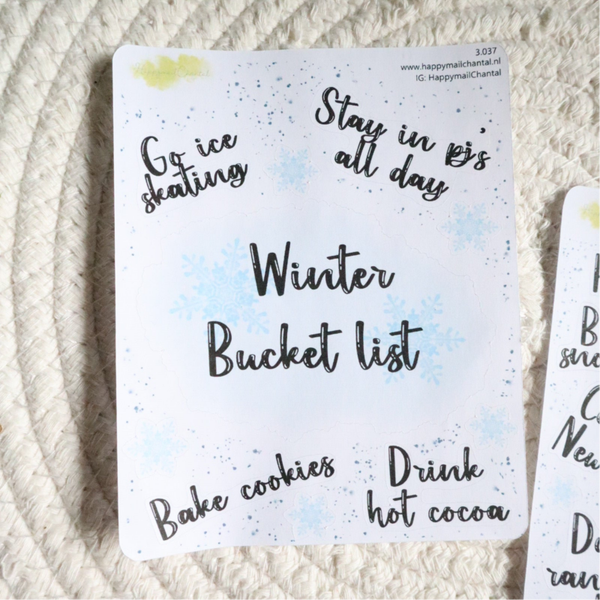 3.037
www.happymailchantal.nl
IG: HappymailChantal
Go ice
skating
Stay in pj's
all day
Winter
Bucket list
Bake cookies
Drink
hot cocoa
B
sno
New
ran